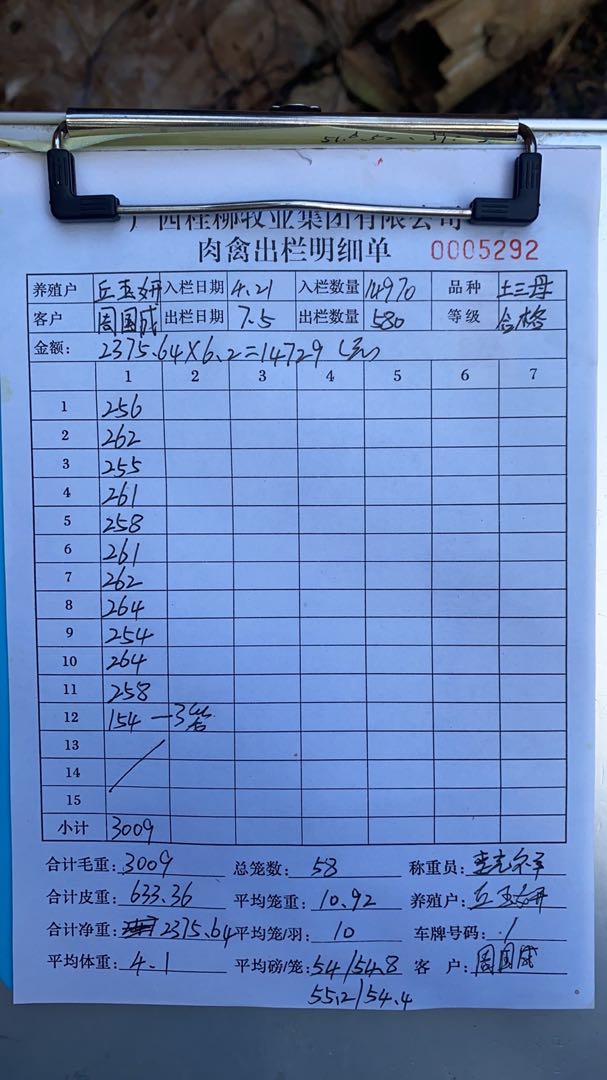 广西桂柳牧业集团有限公司
肉禽出栏明细单 0005292
养殖户 丘玉妍 入栏日期 4.21 入栏数量 14970 品种 土三母
客户 周国成 出栏日期 7.5 出栏数量 580 等级 合格
金额: 2375.64×6.2=14729
1 2 3 4 5 6 7
1 256
2 262
3 255
4 261
5 258
6 261
7 262
8 264
9 254
10 264
11 258
12 154 —3笼
13
14
15
小计 3009
合计毛重: 3009 总笼数: 58 称重员:
合计皮重: 633.36 平均笼重: 10.92 养殖户: 丘玉妍
合计净重: 2375.64 平均笼/羽: 10 车牌号码: 1
平均体重: 4.1 平均磅/笼: 54/54.8 客户: 周国成
55.2/54.4